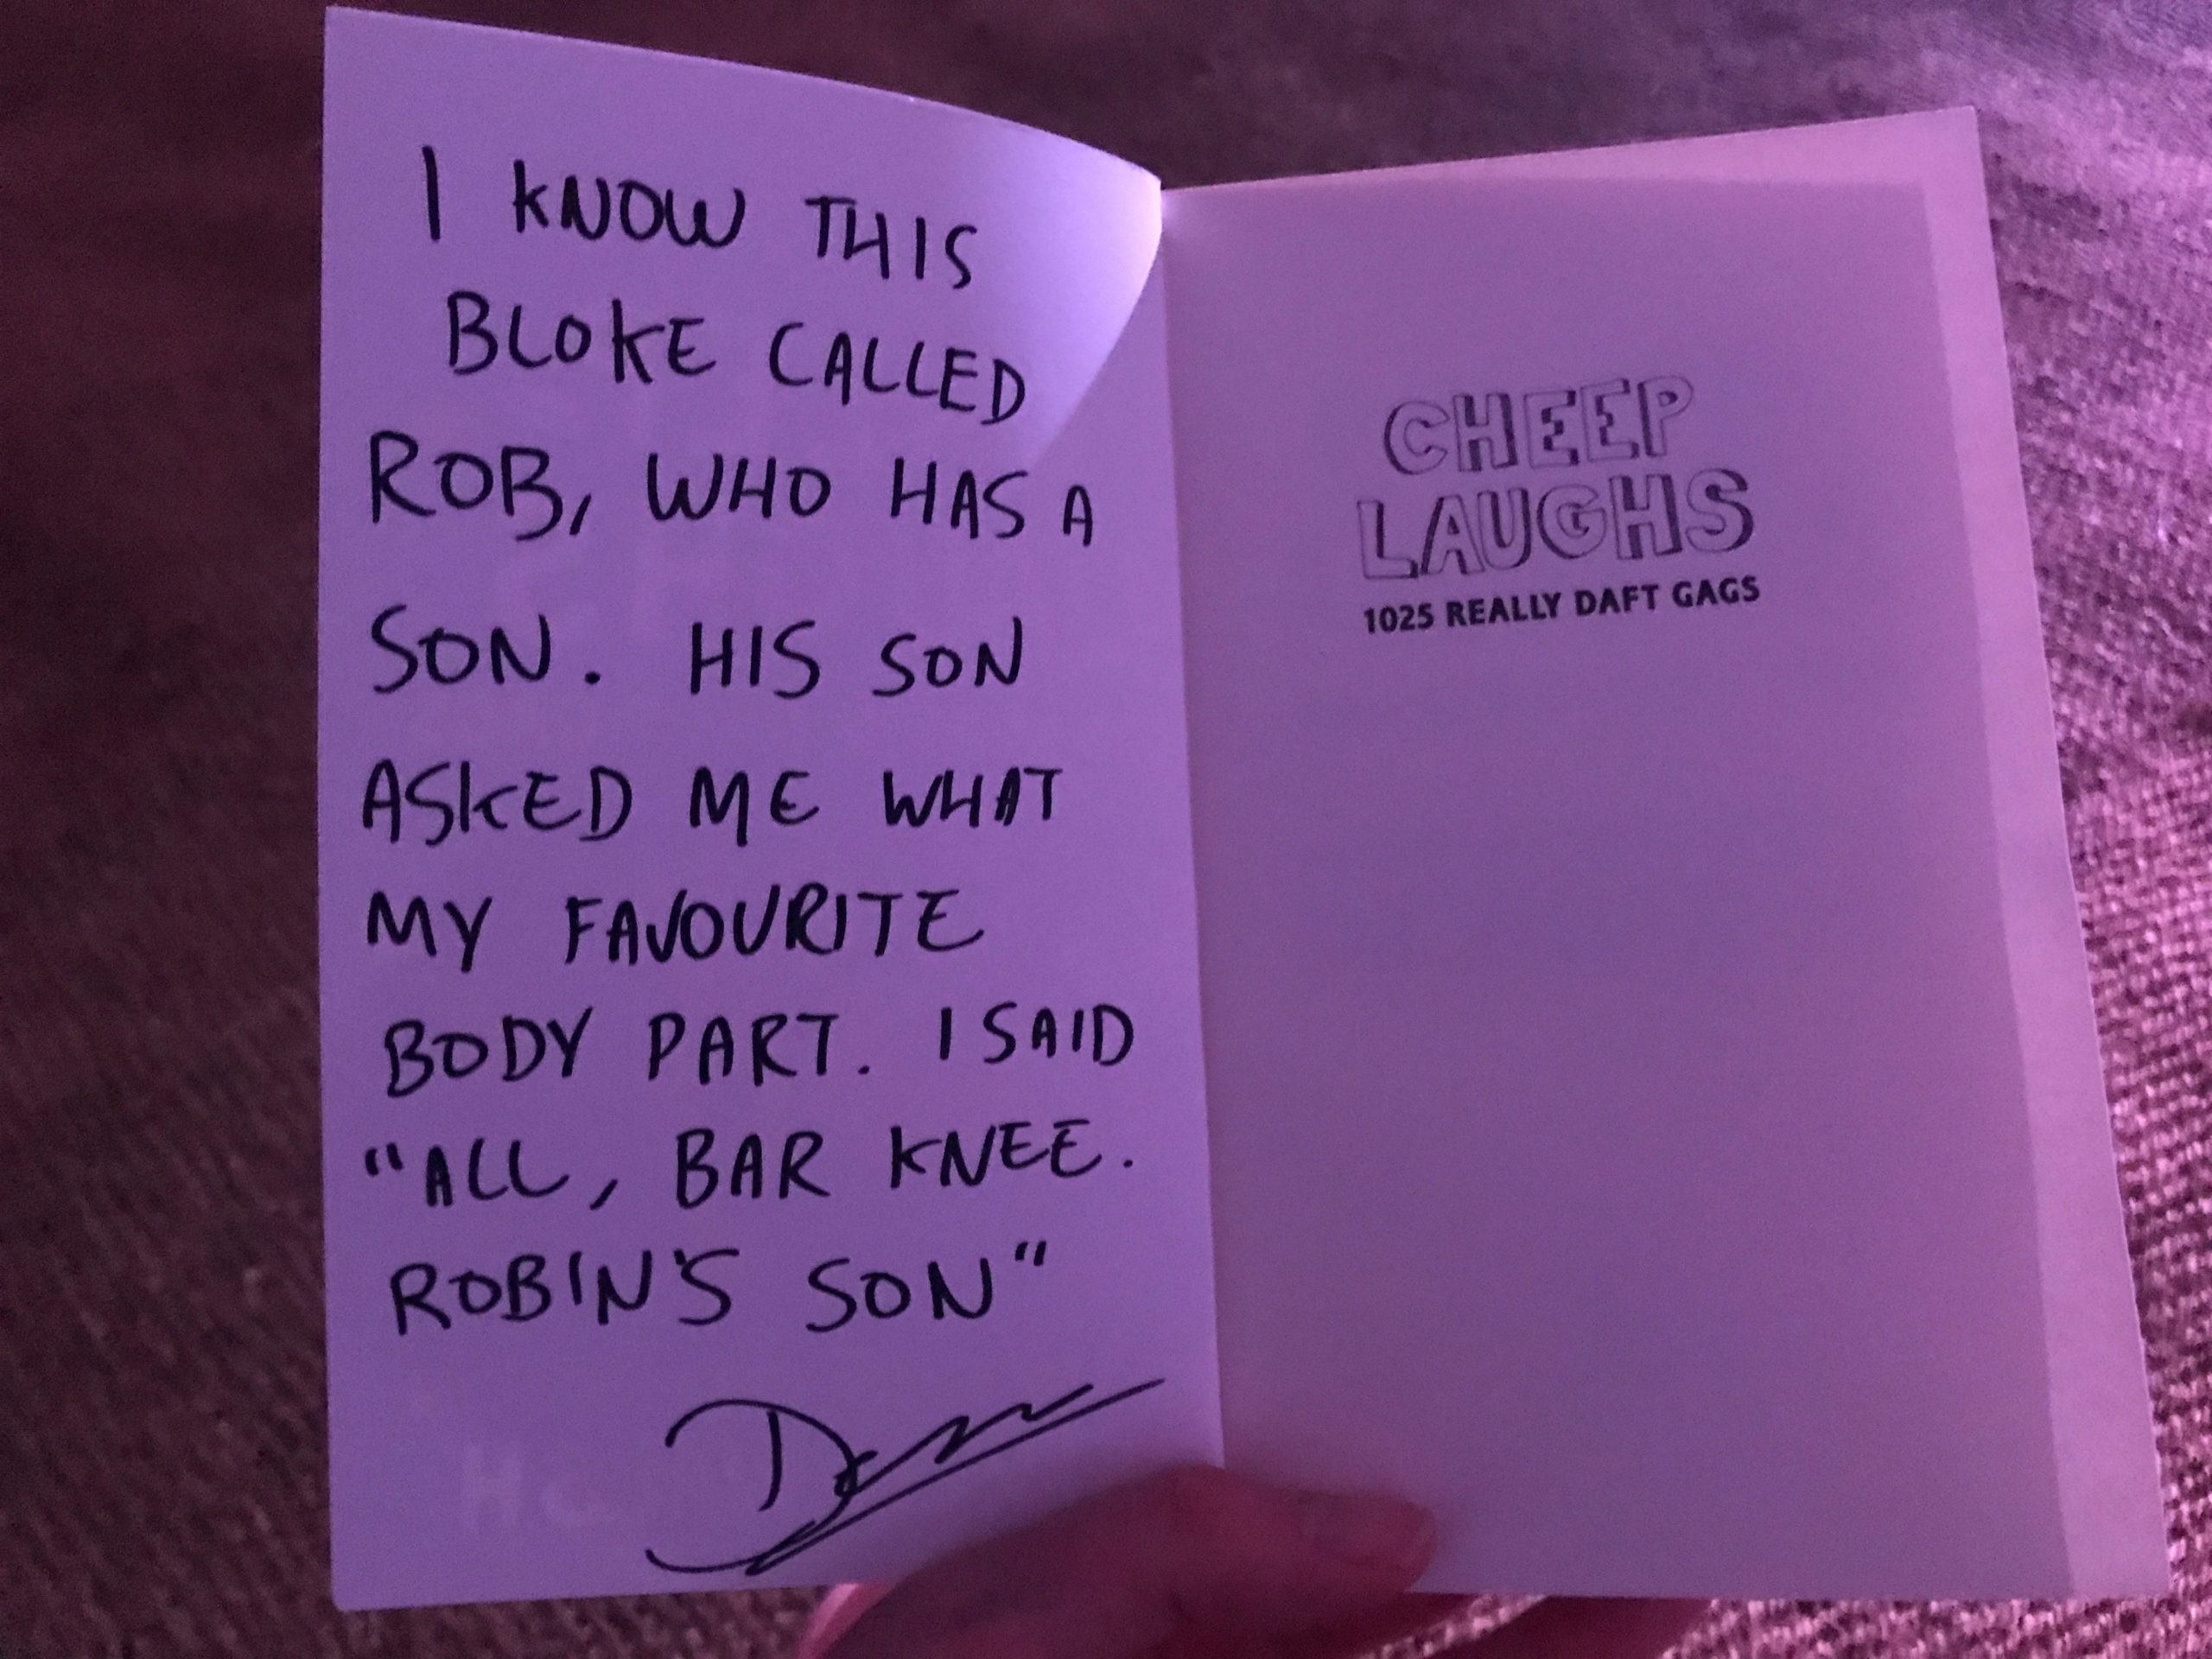 I KNOW THIS
BLOKE CALLED
ROB, WHO HAS A
SON. HIS SON
ASKED ME WHAT
MY FAVOURITE
BODY PART. I SAID
"ALL, BAR KNEE.
ROBIN'S SON"
CHEEP
LAUGHS
1025 REALLY DAFT GAGS